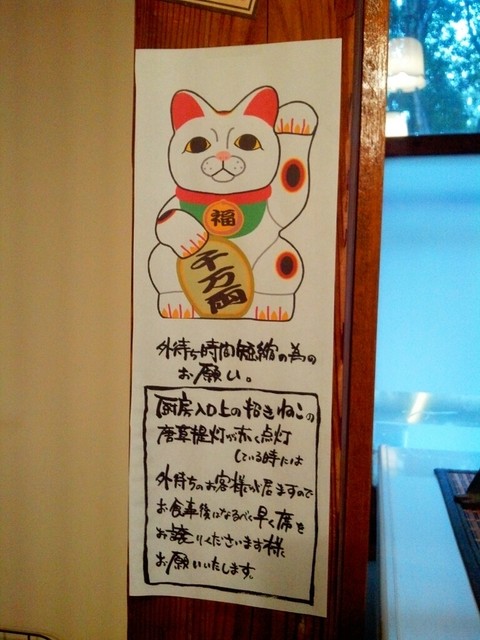 福
千万両
外待ち時間短縮の為の
お願い。
厨房入口上の招きねこの
唐草提灯が赤く点灯
している時には
外待ちのお客様が居ますので
お食事後はなるべく早く席を
お譲りくださいます様に
お願いいたします。